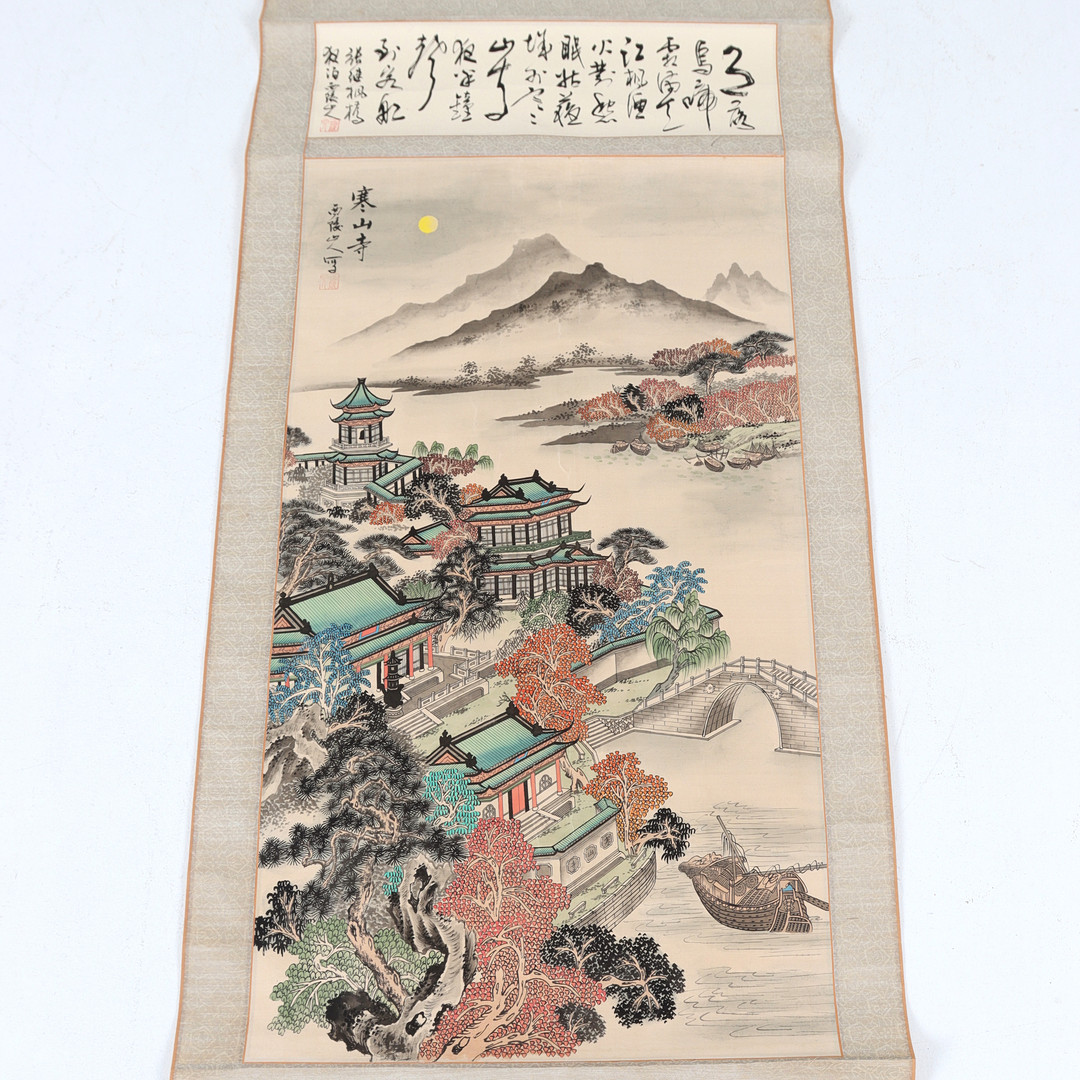 月落
烏啼
霜滿天
江楓漁
火對愁
眠姑蘇
城外寒
山寺
夜半鐘
聲
到客船
張繼楓橋
夜泊
寒山寺
山人写